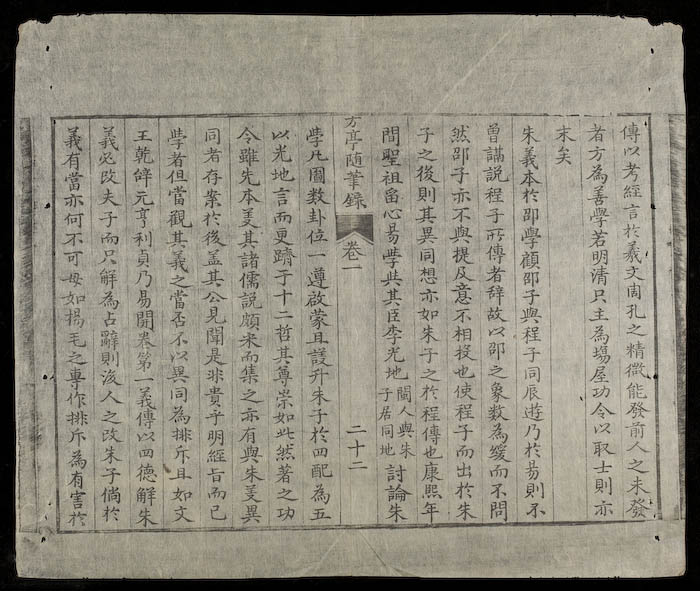 傳以考經言於羲文周孔之精微能發前人之未發
者方為善學若明清只主為塲屋功令以取士則亦
末矣
朱義本於邵學顧邵子與程子同辰遊乃於易則不
曾講說程子所傳者辞故以邵之象數為緩而不問
然邵子亦不與提及意不相投也使程子而出於朱
子之後則其異同想亦如朱子之於程傳也康熙年
間聖祖畱心易學與其臣李光地閩人與朱子居同地討論朱
方亭随筆錄 卷一 二十二
學凢圖數卦位一遵啟蒙且議升朱子於四配為五
以光地言而更躋于十二哲其尊崇如此然著之功
令雖先本義其諸儒說頗采而集之亦有與朱義異
同者存案於後盖其公見聞是非貴乎明經旨而已
學者但當觀其義之當否不以異同為排斥且如文
王乾辝元亨利貞乃易開卷第一義傳以四德解朱
義必改夫子而只解為占辭則後人之改朱子倘於
義有當亦何不可毋如楊毛之專作排斥為有害於